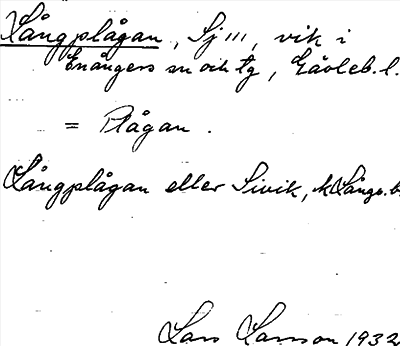 Långplågan, Sjö, vik i
Enångers sn och tg, Gävleb. l.
= Plågan.
Långplågan eller Sivik, k Långv. b.
Lars Larsson 1932